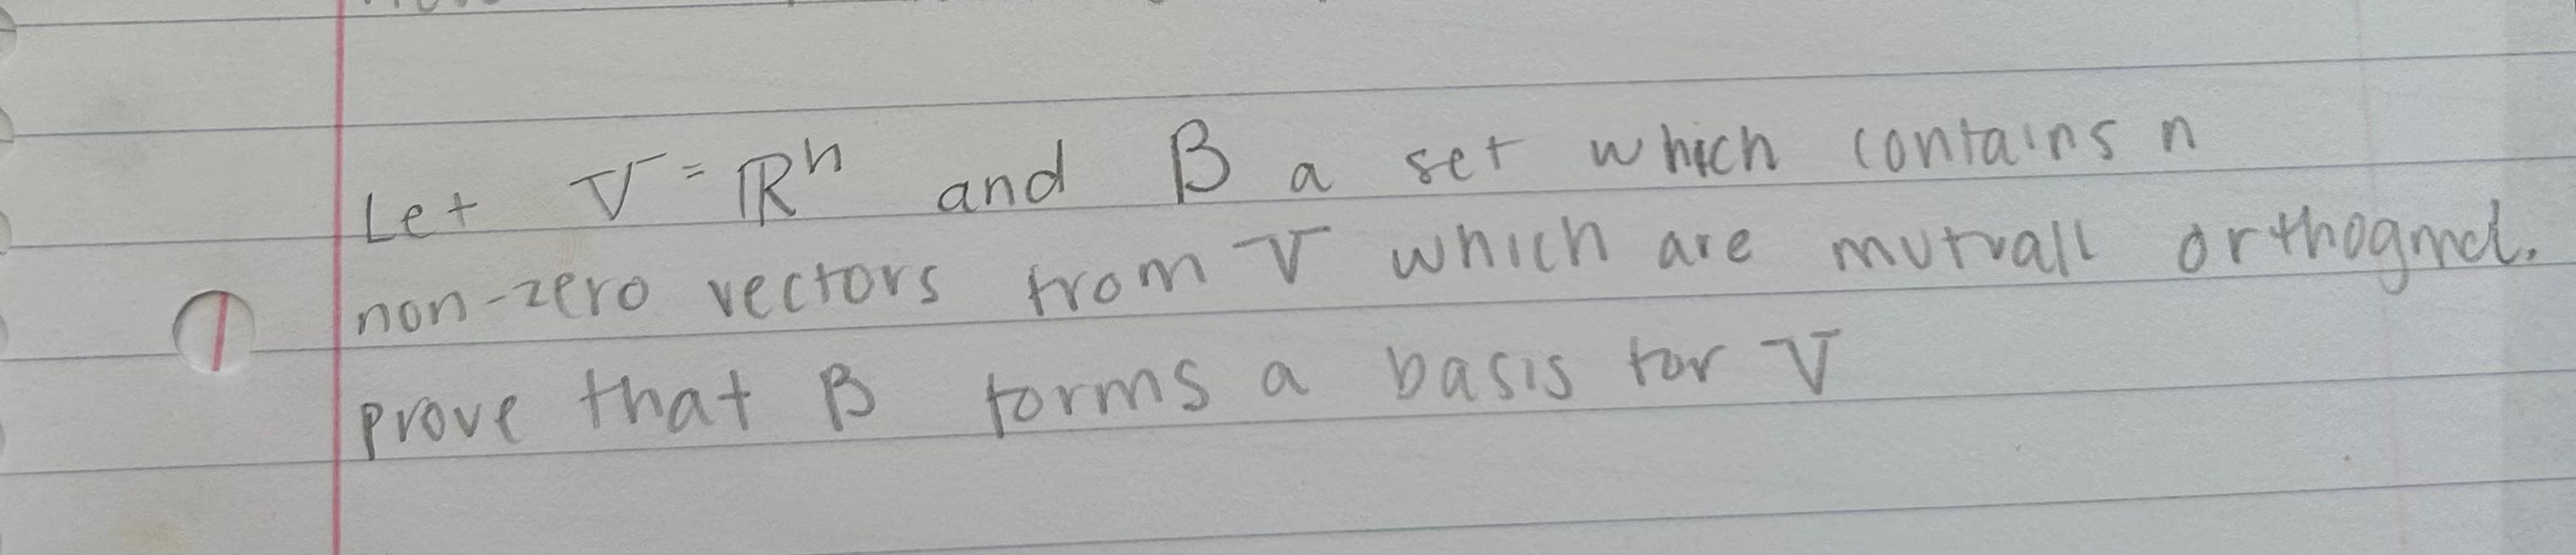 Let V = ℝⁿ and β a set which contains n
non-zero vectors from V which are mutuall orthognal.
prove that β forms a basis for V